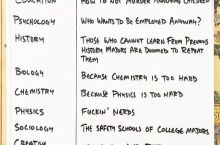 EDUCATION HOW TO NOT MURDER ANNOYING CHILDREN
PSYCHOLOGY WHO WANTS TO BE EMPLOYED ANYWAY?
HISTORY THOSE WHO CANNOT LEARN FROM PREVIOUS
HISTORY MAJORS ARE DOOMED TO REPEAT
THEM
BIOLOGY BECAUSE CHEMISTRY IS TOO HARD
CHEMISTRY BECAUSE PHYSICS IS TOO HARD
PHYSICS FUCKIN' NERDS
SOCIOLOGY THE SAFETY SCHOOLS OF COLLEGE MAJORS
CREATIVE